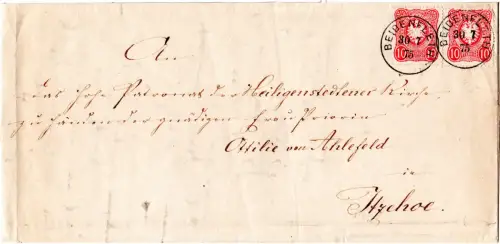 BEIDENFLETH BEIDENFLETH
30 7 30 7
75 75
10 10 10 10
An
das hohe Patronat der Heiligenstedtener Kirche
zu Händen der gnädigen Frau Priorin
Ottilie von Ahlefeld
in
Itzehoe.